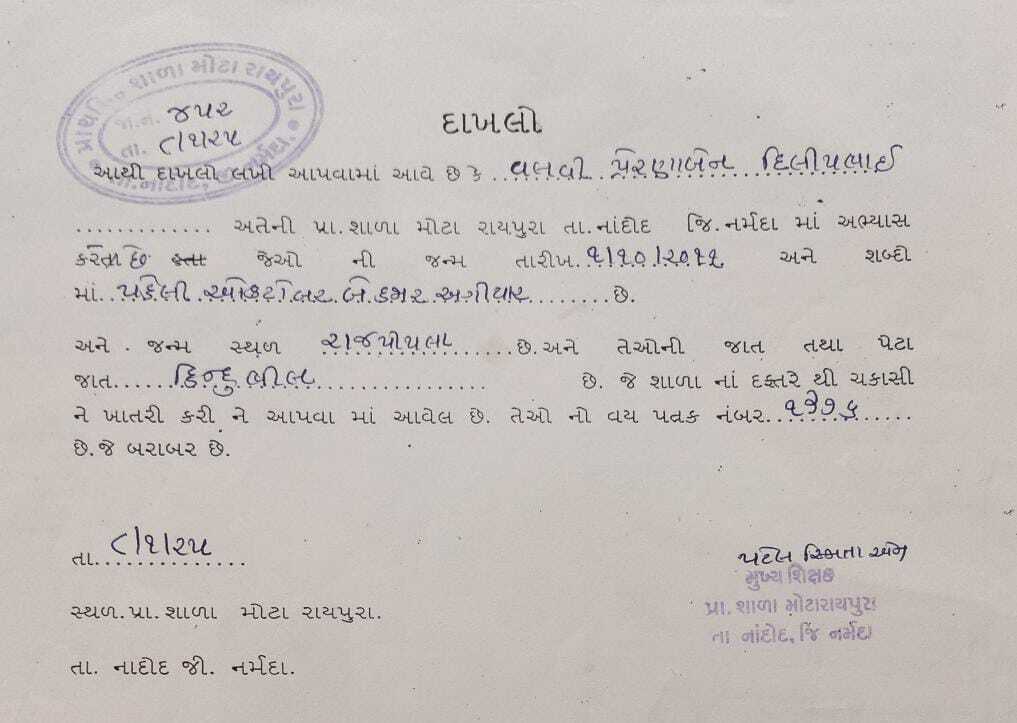 પ્રાથમિક શાળા મોટા રાયપુરા
જા.નં. ૪૫૨
તા. ૮/૧/૨૫
તા.નાંદોદ, જી.નર્મદા.
દાખલો
આથી દાખલો લખી આપવામાં આવે છે કે ..વલવી..પ્રેરણાબેન દિલીપભાઈ
............. અતેની પ્રા.શાળા મોટા રાયપુરા તા.નાંદોદ જિ.નર્મદા માં અભ્યાસ
કરતા છે હતા જેઓ ની જન્મ તારીખ.૧/૧૦/૨૦૧૧ અને શબ્દો
માં..પહેલી.ઓક્ટોબર.બે હજાર.અગીયાર.......છે.
અને . જન્મ સ્થળ રાજપીપલા......છે.અને તેઓની જાત તથા પેટા
જાત......હિન્દુ ભીલ................ છે. જે શાળા નાં દફતરે થી ચકાસી
ને ખાતરી કરી ને આપવા માં આવેલ છે. તેઓ નો વય પત્રક નંબર..૧૩૭૬.....
છે.જે બરાબર છે.
તા. ૮/૧/૨૫
સ્થળ.પ્રા.શાળા મોટા રાયપુરા.
તા. નાદોદ જી. નર્મદા.
પટેલ સ્મિતા એમ
મુખ્ય શિક્ષક
પ્રા. શાળા મોટારાયપુરા
તા નાંદોદ, જિ નર્મદા